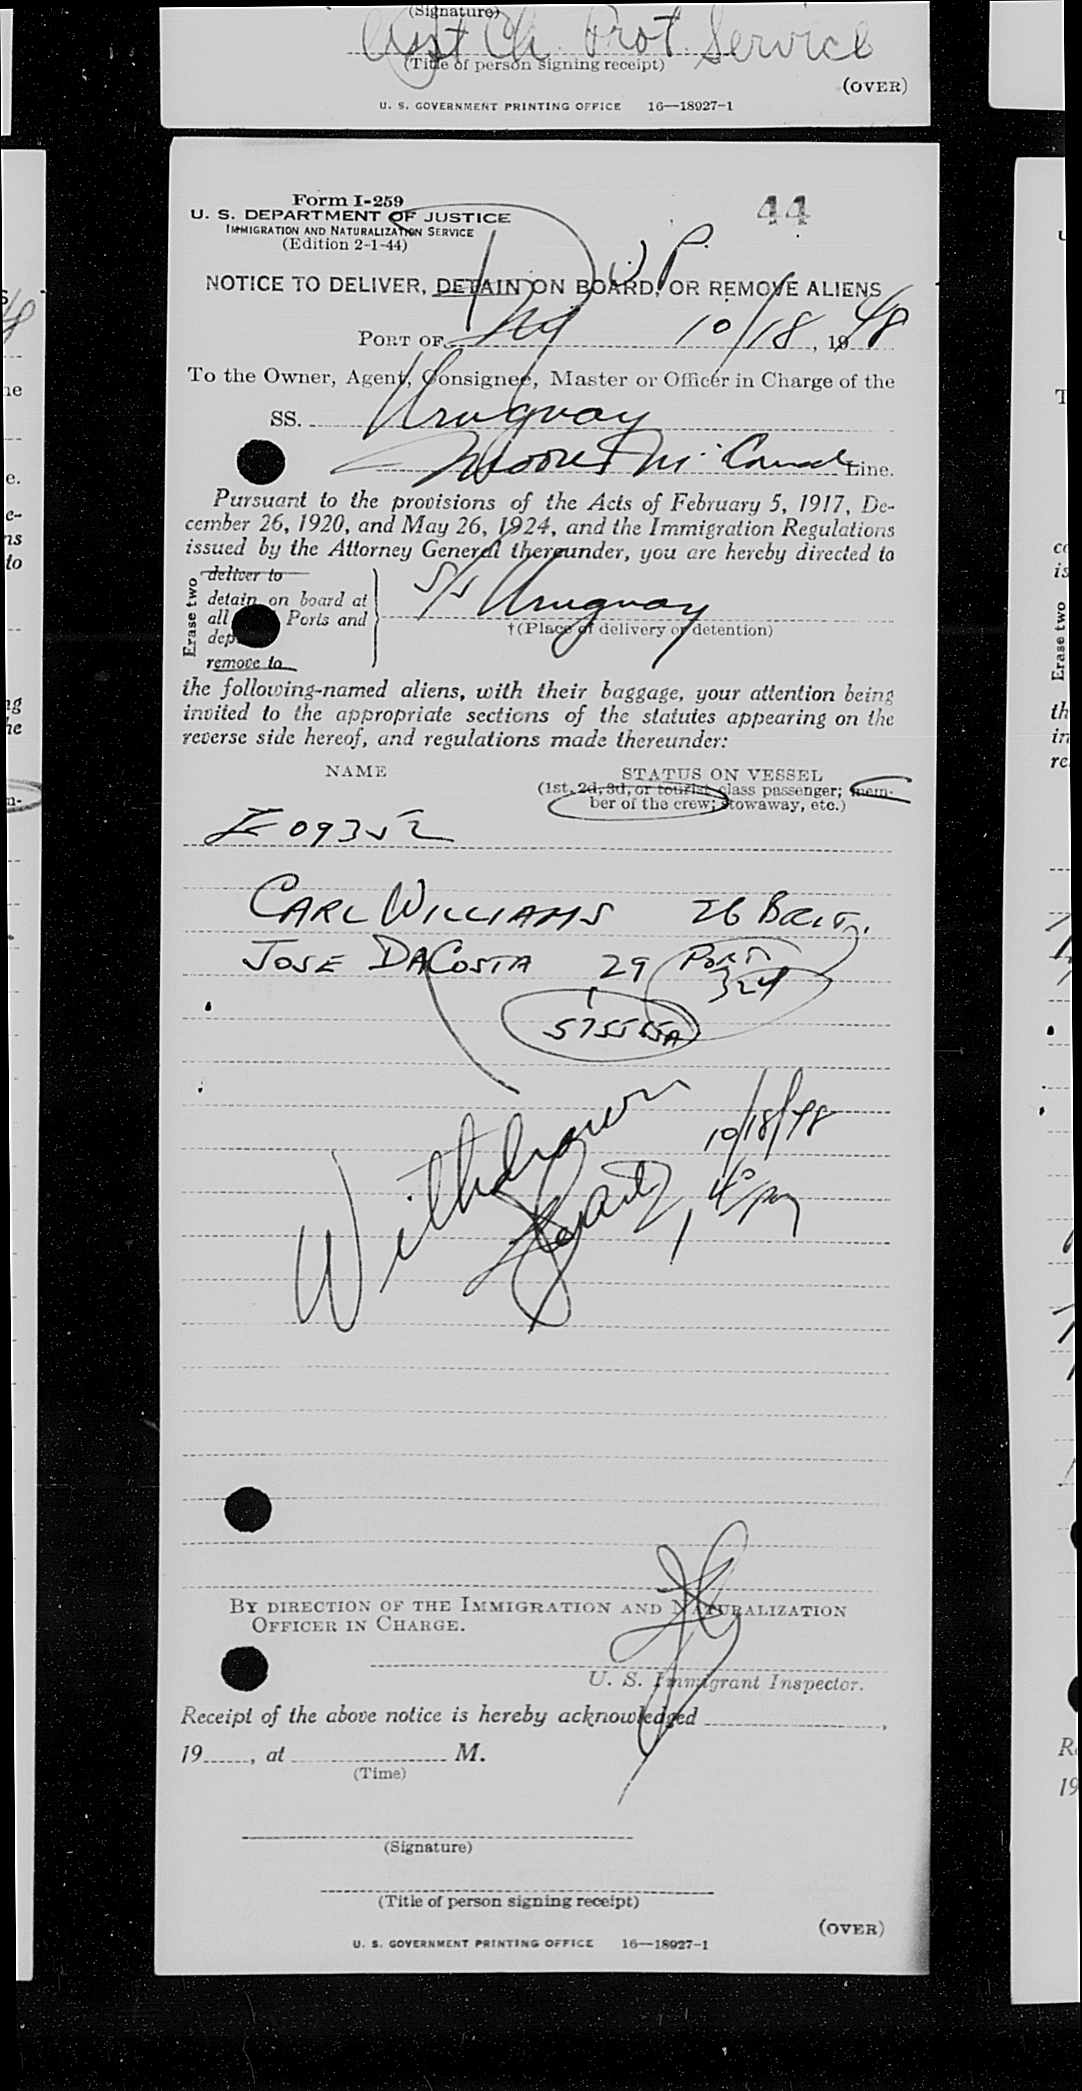 (Signature)
Asst Ch. Prot Service
(Title of person signing receipt)
(OVER)
U. S. GOVERNMENT PRINTING OFFICE 16—18927-1
Form I-259
U. S. DEPARTMENT OF JUSTICE
IMMIGRATION AND NATURALIZATION SERVICE
(Edition 2-1-44)
44
NOTICE TO DELIVER, DETAIN ON BOARD, OR REMOVE ALIENS
PORT OF NY 10/18, 1948
To the Owner, Agent, Consignee, Master or Officer in Charge of the
SS. Uruguay
Line.
Pursuant to the provisions of the Acts of February 5, 1917, De-
cember 26, 1920, and May 26, 1924, and the Immigration Regulations
issued by the Attorney General thereunder, you are hereby directed to
Erase two
deliver to
detain on board at
all Ports and
remove to
S/S Uruguay
†(Place of delivery or detention)
the following-named aliens, with their baggage, your attention being
invited to the appropriate sections of the statutes appearing on the
reverse side hereof, and regulations made thereunder:
NAME STATUS ON VESSEL
(1st, 2d, 3d, or tourist class passenger; mem-
ber of the crew; stowaway, etc.)
E 09352
CARL WILLIAMS 26 BRIT.
JOSE DACOSTA 29 PORT
324
575555A
Withdrawn 10/18/48
By DIRECTION OF THE IMMIGRATION AND NATURALIZATION
OFFICER IN CHARGE.
U. S. Immigrant Inspector.
Receipt of the above notice is hereby acknowledged ,
19 , at M.
(Time)
(Signature)
(Title of person signing receipt)
(OVER)
U. S. GOVERNMENT PRINTING OFFICE 16—18927-1